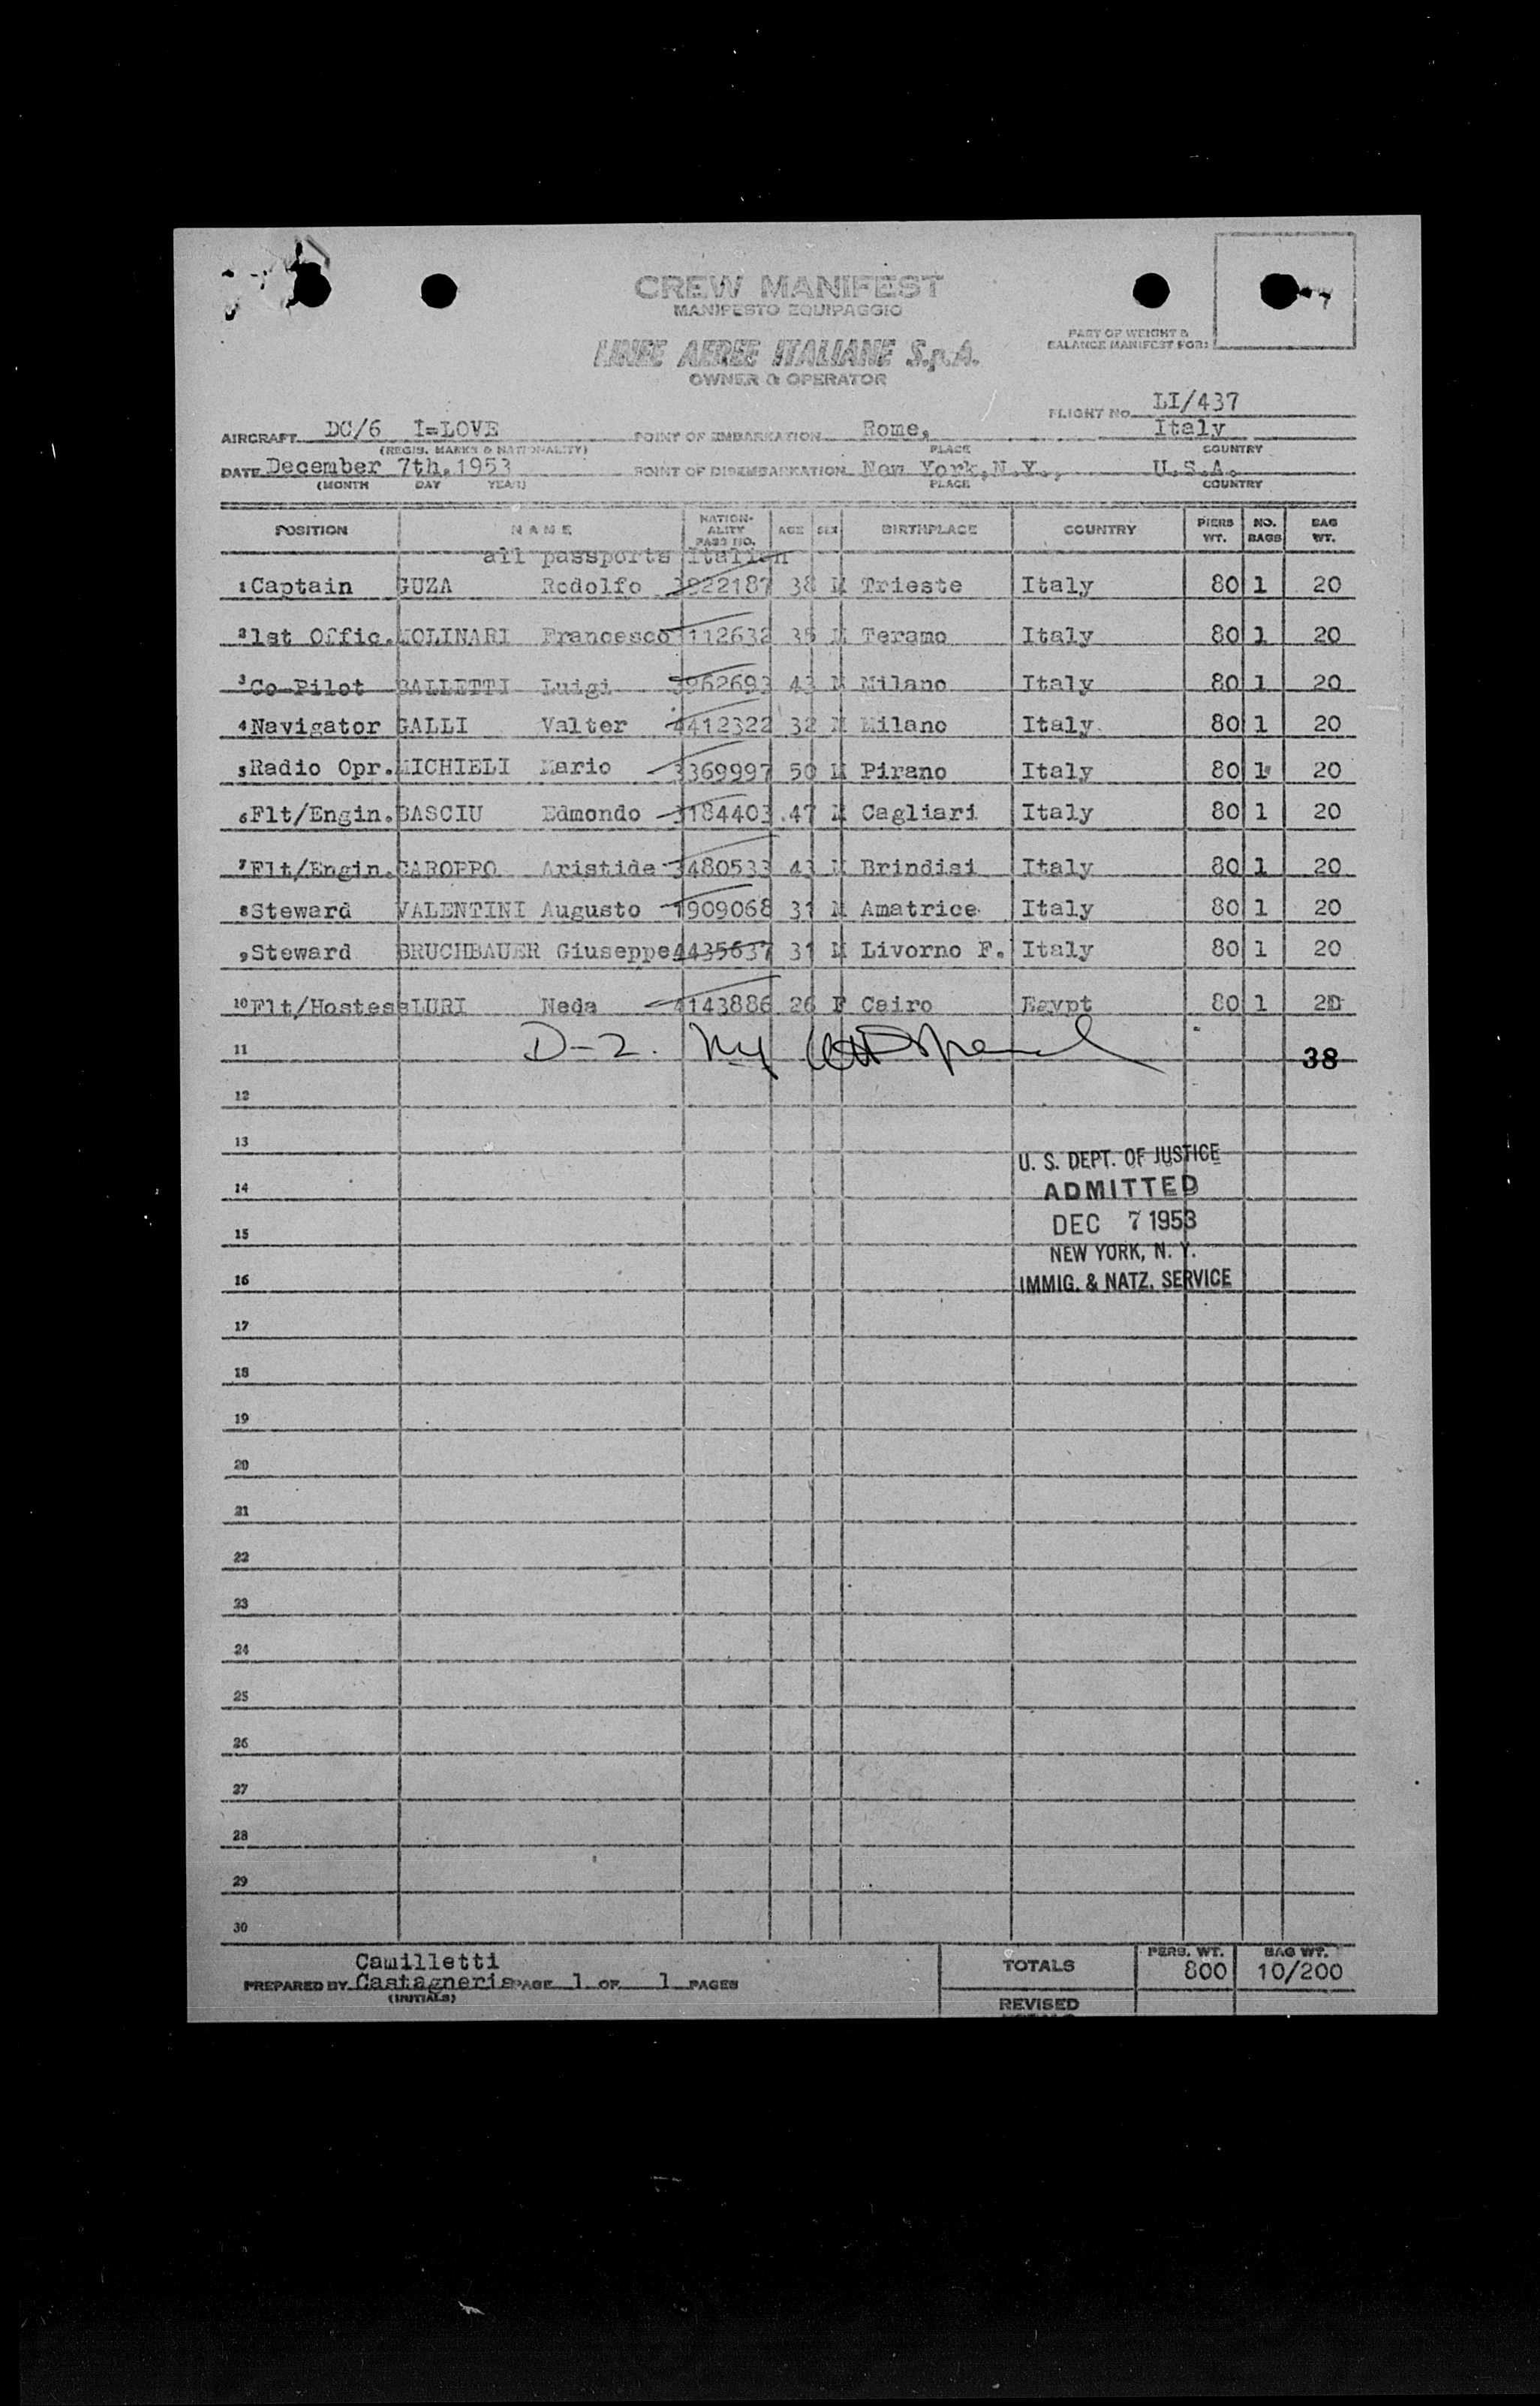 CREW MANIFEST
MANIFESTO EQUIPAGGIO
LINEE AEREE ITALIANE S.p.A.
OWNER & OPERATOR
PART OF WEIGHT &
BALANCE MANIFEST FOR:
FLIGHT No. LI/437
AIRCRAFT DC/6 I=LOVE POINT OF EMBARKATION Rome, Italy
(REGIS. MARKS & NATIONALITY) PLACE COUNTRY
DATE December 7th.1953 POINT OF DISEMBARKATION New York,N.Y., U.S.A.
(MONTH DAY YEAR) PLACE COUNTRY
POSITION NAME NATION-ALITY PASS NO. AGE SEX BIRTHPLACE COUNTRY PIERS WT. NO. BAGS BAG WT.
all passports Italian
1 Captain GUZA Rodolfo 3922187 38 M Trieste Italy 80 1 20
2 1st Offic. MOLINARI Francesco 3112632 35 M Teramo Italy 80 1 20
3 Co-Pilot BALLETTI Luigi 3962693 43 M Milano Italy 80 1 20
4 Navigator GALLI Valter 4412322 32 M Milano Italy. 80 1 20
5 Radio Opr. MICHIELI Mario 3369997 50 M Pirano Italy 80 1 20
6 Flt/Engin. BASCIU Edmondo 3184403 .47 M Cagliari Italy 80 1 20
7 Flt/Engin. CAROPPO Aristide 3480533 43 M Brindisi Italy 80 1 20
8 Steward VALENTINI Augusto 1909068 31 M Amatrice Italy 80 1 20
9 Steward BRUCHBAUER Giuseppe 4435637 31 M Livorno F. Italy 80 1 20
10 Flt/Hostess LURI Neda 4143886 26 F Cairo Egypt 80 1 20
11 D-2. NY 38
12
13
U. S. DEPT. OF JUSTICE
14 ADMITTED
15 DEC 7 1953
NEW YORK, N. Y.
16 IMMIG. & NATZ. SERVICE
17
18
19
20
21
22
23
24
25
26
27
28
29
30
Camilletti
PREPARED BY Castagneris PAGE 1 OF 1 PAGES
(INITIALS)
TOTALS PERS. WT. 800 BAG WT. 10/200
REVISED